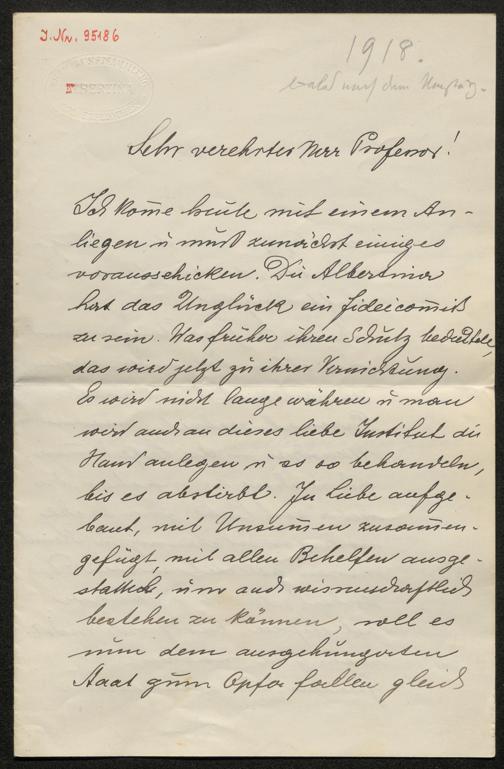 J. Nr. 95186
1918.
bald nach dem Umsturz.
ALBERTINA
Sehr verehrter Herr Professor!
Ich kom̄e heute mit einem An-
liegen u muß zunächst einiges
vorausschicken. Die Albertina
hat das Unglück ein Fideicom̄iß
zu sein. Was früher ihren Schutz bedeutete,
das wird jetzt zu ihrer Vernichtung.
Es wird nicht lange währen u man
wird auch an dieses liebe Institut die
Hand anlegen u es so behandeln,
bis es abstirbt. In Liebe aufge-
baut, mit Unsum̄en zusam̄en-
gefügt, mit allen Behelfen ausge-
stattet, um auch wissenschaftlich
bestehen zu können, soll es
nun dem ausgehungerten
Staat zum Opfer fallen gleich